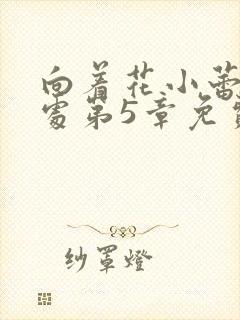 向着花小蕾
处第5章免费
纱罩燈